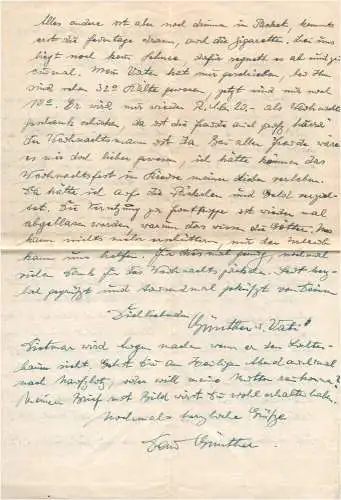 Alles andere ist aber noch drinnen im Packet, kommt
erst die Feiertage dran, auch die Zigaretten. Bei uns
liegt noch kein Schnee, dafür regnet es ab und zu
einmal. Mein Vater hat mir geschrieben, bei Ihm
wird schon 32° Kälte gewesen, jetzt sind nur noch
18°. Er will mir wieder R.Mk. 20.- als Weihnachts
geschenk schicken, da ist die Freude auch groß,
der Weihnachtsmann ist da. Bei aller Freude wäre
es mir doch lieber gewesen, ich hätte können das
Weihnachtsfest im Kreise meiner Lieben verleben.
Da hätte ich auf die Päckchen und Geld verzich-
tet. Die Versetzung zur Fronttruppe ist wieder mal
abgeblasen worden, warum das wissen die Götter.
kann nichts mehr erschüttern, nur der
kann uns helfen. Für diesmal genug, nochmal
vielen Dank für das Weihnachtspäckchen. Sei herz-
lich gegrüßt und tausendmal geküsst von Deinem
Dich liebenden
Günther u. Vati
Dietmar wird sagen nachen wenn er den
baum sieht. Gehst Du am Heiligen Abend auch mal
nach oder will meine Mutter
Meinen Brief mit Bild wirst Du wohl erhalten haben.
Nochmals herzliche Grüße
Dein Günther